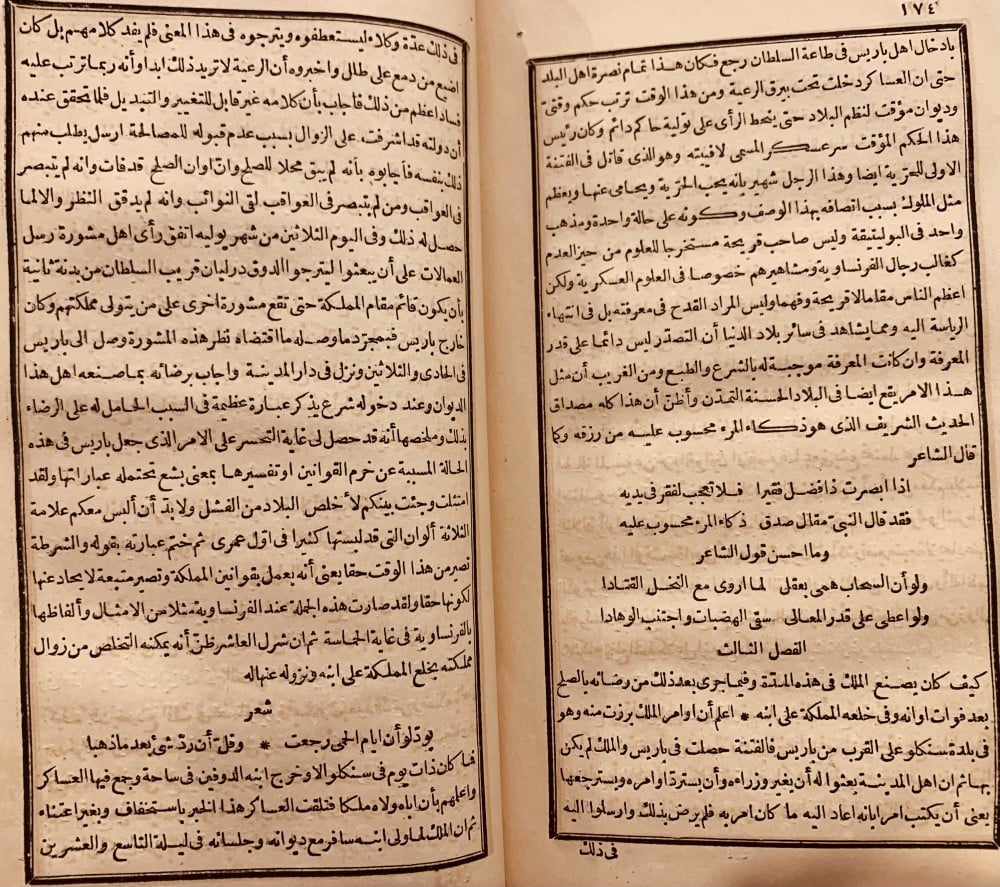 ١٧٤
بادخال اهل باريس فى طاعة السلطان رجع فكان هذا تمام نصرة اهل البلد
حتى ان العساكر دخلت تحت بيرق الرعية ومن هذا الوقت ترتب حكم وقتىّ
وديوان مؤقت لنظم البلاد حتى ينحط الرأى على تولية حاكم دائم وكان رئيس
هذا الحكم المؤقت سرعسكر المسمى لافييته وهو الذى قاتل فى الفتنة
الاولى للحرّية ايضا وهذا الرجل شهير بانه يحب الحرّية ويحامى عنها ويعظم
مثل الملوك بسبب اتصافه بهذا الوصف وكونه على حالة واحدة ومذهب
واحد فى البوليتيقة وليس صاحب قريحة مستخرجا للعلوم من حيز العدم
كغالب رجال الفرنساوية ومشاهيرهم خصوصا فى العلوم العسكرية ولكن
اعظم الناس مقاما لاقريحة وفهما وليس المراد القدح فى معرفته بل فى انتهاء
الرياسة اليه ومما يشاهد فى سائر بلاد الدنيا أن التصدّر ليس دائما على قدر
المعرفة وان كانت المعرفة موجبة له بالشرع والطبع ومن الغريب أن مثل
هذا الامر يقع ايضا فى البلاد الحسنة التمدّن وأظنّ أن هذا كله مصداق
الحديث الشريف الذى هو ذكاء المرء محسوب عليه من رزقه وكما
قال الشاعر
اذا ابصرت ذا فضل فقيرا فلا تعجب لفقر فى يديه
فقد قال النبىّ مقال صدق ذكاء المرء محسوب عليه
وما احسن قول الشاعر
ولو أن السحاب همى بعقلى لما اروى مع النخل القتادا
ولو اعطى على قدر المعالى سقى الهضبات واجتنب الوهادا
الفصل الثالث
كيف كان يصنع الملك فى هذه المدّة وفيما جرى بعد ذلك من رضائه بالصلح
بعد فوات اوانه وفى خلعه المملكة على ابنه * اعلم أن اوامر الملك برزت منه وهو
فى بلدة سنكلو على القرب من باريس فالفتنة حصلت فى باريس والملك لم يكن
بها ثم ان اهل المدينة بعثوا له أن يغير وزراءه وأن يستردّ اوامره ويسترجعها
يعنى أن يكتب امرا بانه اعاد اليه ما كان امر به فلم يرض بذلك وارسلوا اليه
فى ذلك
فى ذلك عدّة وكلاء ليستعطفوه ويترجوه فى هذا المعنى فلم يفد كلامهم بل كان
اضيع من دمع على طلل واخبروه أن الرعية لا تريد ذلك ابدا وأنه ربما ترتب عليه
فساد اعظم من ذلك فاجاب بأن كلامه غير قابل للتغيير والتبديل فلما تحقق عنده
أن دولته قد اشرفت على الزوال بسبب عدم قبوله للمصالحة ارسل يطلب منهم
ذلك بنفسه فأجابوه بأنه لم يبق محلا للصلح وانّ اوان الصلح قد فات وانه لم يتبصر
فى العواقب ومن لم يتبصر فى العواقب لقى النوائب وانه لم يدقق النظر والا لما
حصل له ذلك وفى اليوم الثلاثين من شهر يوليه اتفق رأى اهل مشورة رسل
العمالات على أن يبعثوا ليترجوا الدوق درليان قريب السلطان من بدنة ثانية
بأن يكون قائم مقام المملكة حتى تقع مشورة اخرى على من يتولى مملكتهم وكان
خارج باريس فبمجرد ما وصله ما اقتضاه نظر هذه المشورة وصل الى باريس
فى الحادى والثلاثين ونزل فى دار المدينة واجاب برضائه بما صنعه اهل هذا
الديوان وعند دخوله شرع يذكر عبارة عظيمة فى السبب الحامل له على الرضاء
بذلك وملخصها أنه قد حصل لى غاية التحسر على الامر الذى جعل باريس فى هذه
الحالة المسببة عن خرم القوانين او تفسيرها بمعنى بشع تحتمله عباراتها ولقد
امتثلت وجئت بينكم لأخلص البلاد من الفشل ولا بدّ أن ألبس معكم علامة
الثلاثة ألوان التى قد لبستها كثيرا فى اول عمرى ثم ختم عبارته بقوله والشرطة
تصير من هذا الوقت حقا يعنى أنه يعمل بقوانين المملكة وتصير متبعة لا يحاد عنها
لكونها حقا ولقد صارت هذه الجملة عند الفرنساوية مثلا من الامثال وألفاظها
بالفرنساوية فى غاية الحماسة ثم ان شرل العاشر ظنّ أنه يمكنه التخلص من زوال
مملكته بخلع المملكة على ابنه ونزوله عنها له
شعر
يودّ لو أن ايام الحمى رجعت * وقلّ أن ردّ شئ بعد ما ذهبا
فلما كان ذات يوم فى سنكلو الا وخرج ابنه الدوفين فى ساحة وجمع فيها العساكر
واعلمهم بأن اباه ولاه ملكا فتلقت العساكر هذا الخبر باستخفاف وبغير اعتناء
ثم ان الملك لما ولى ابنه سافر مع ديوانه وجلسائه فى ليلة التاسع والعشرين